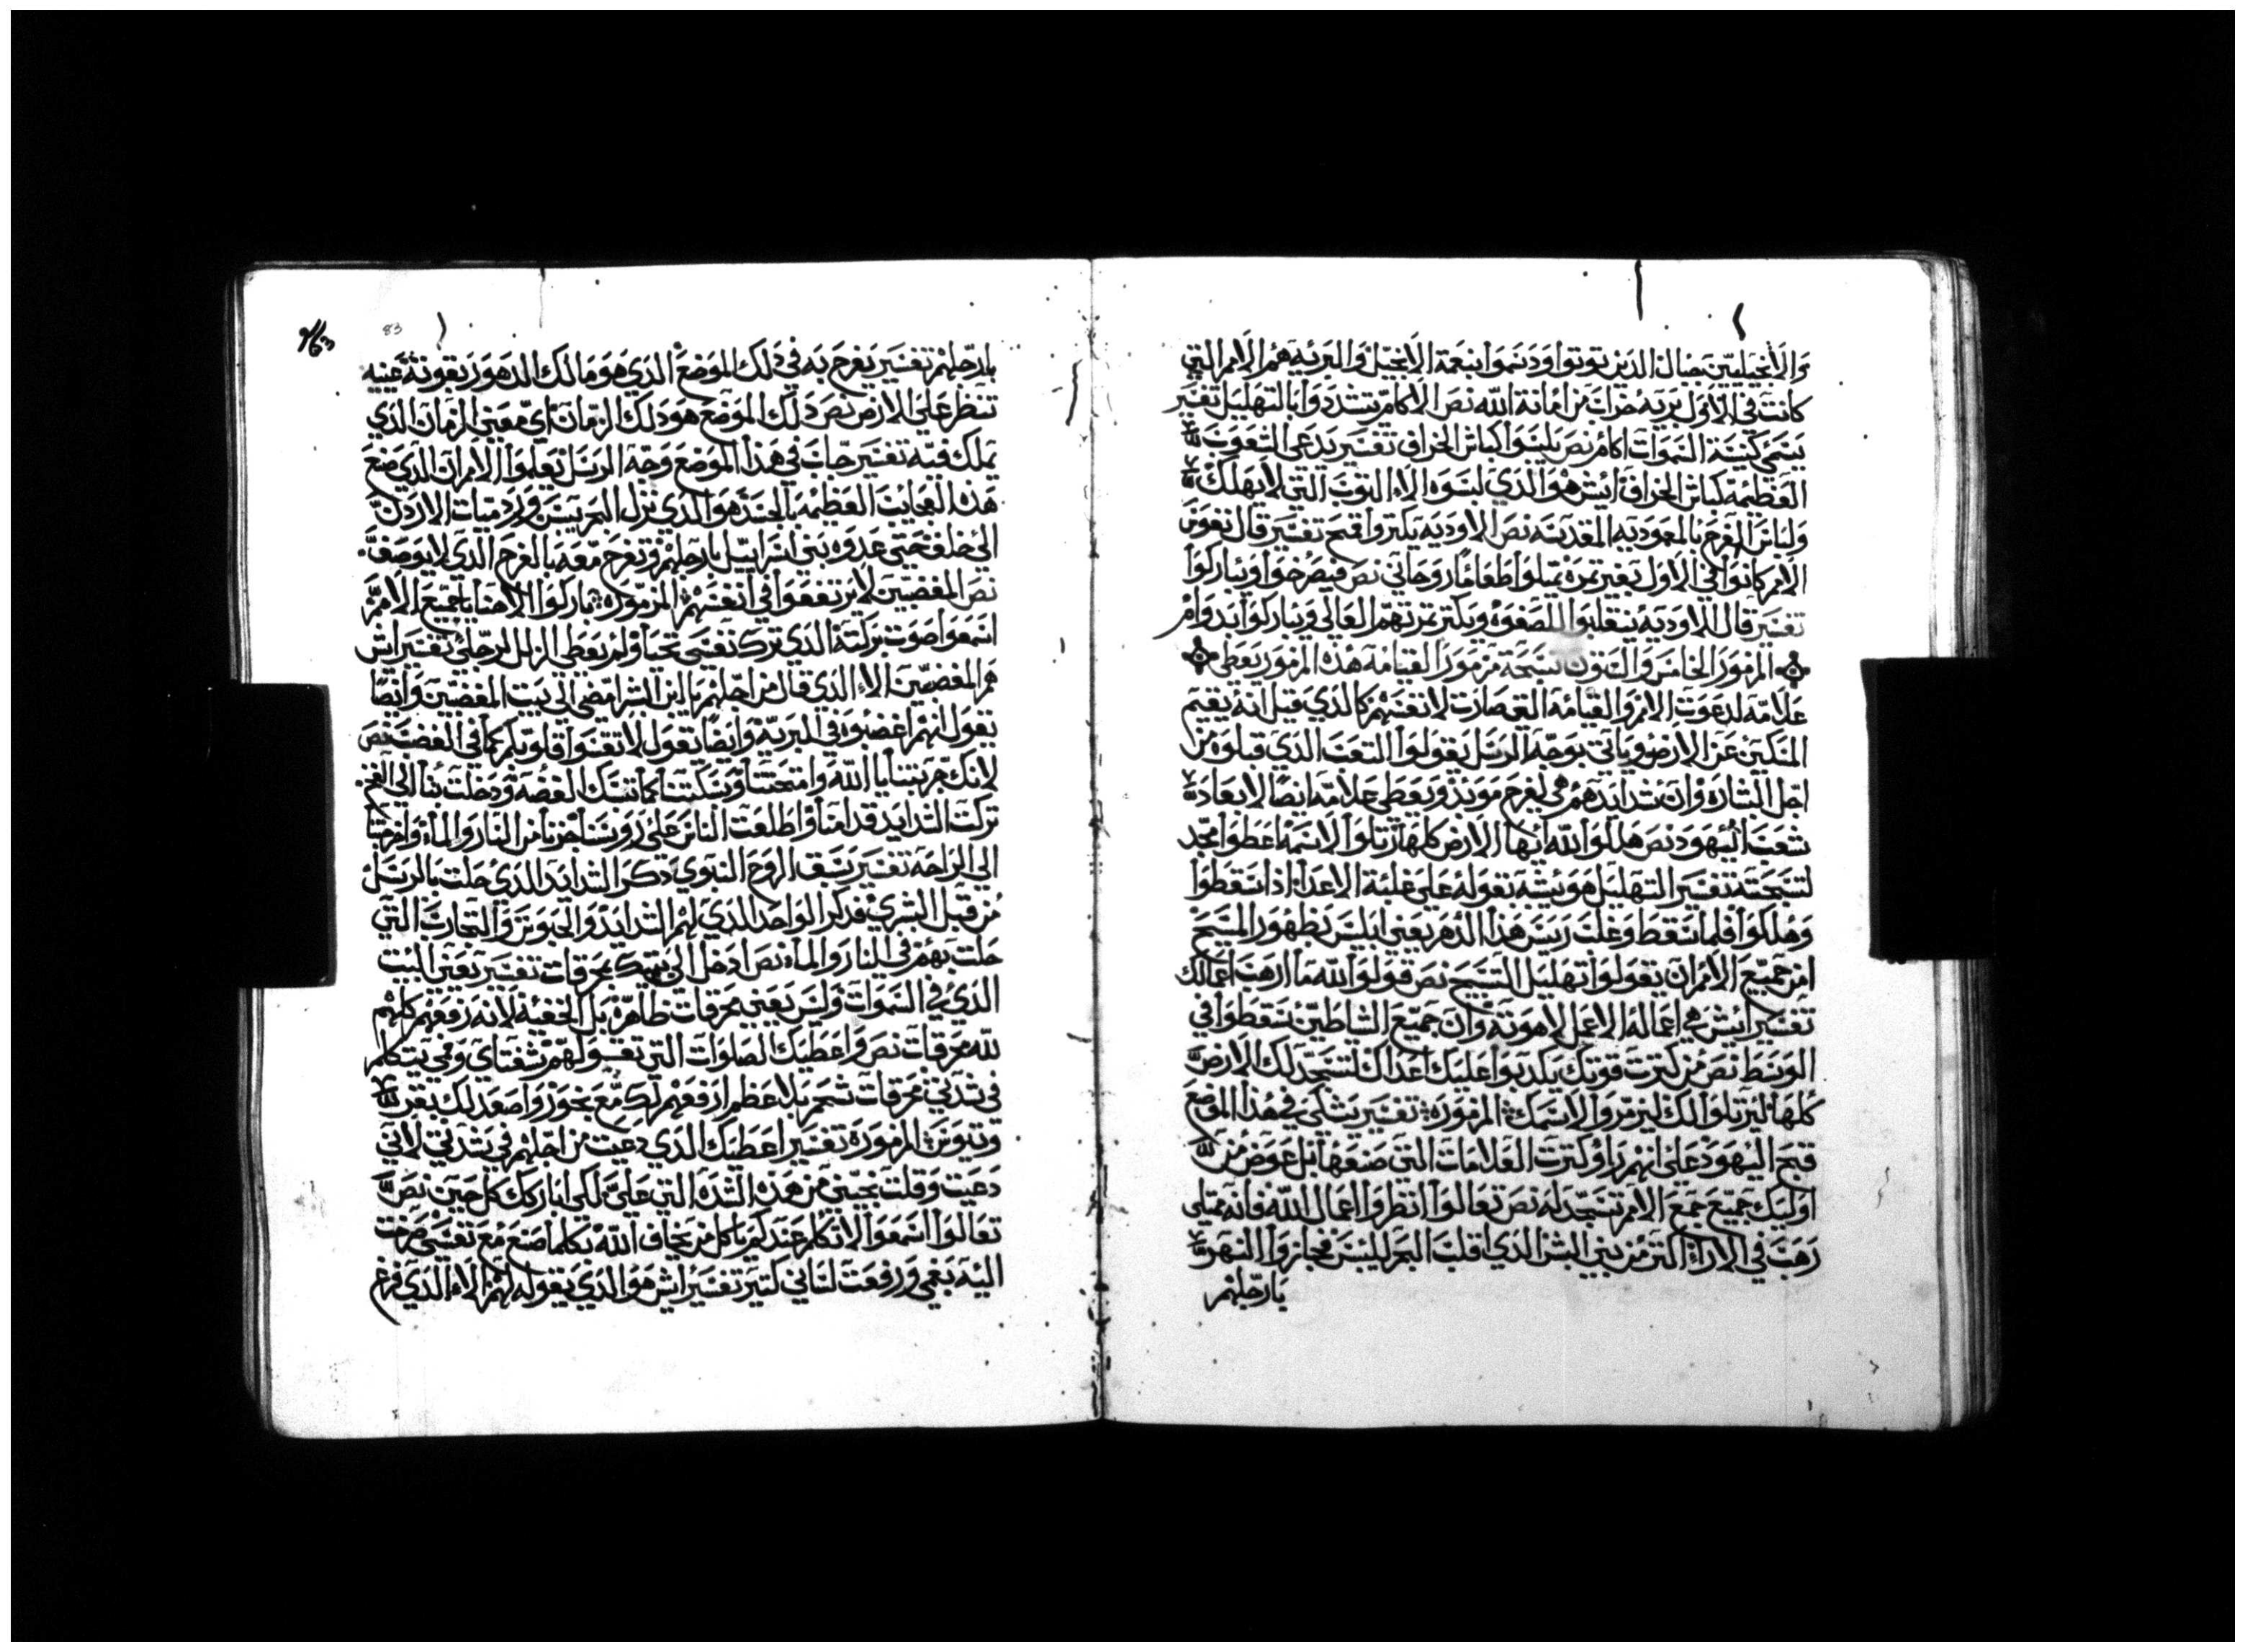 والانجيليين بضال الذين توتوا ودسموا بنعمة الانجيل والبريه هم الامم التي
كانت في الاول بريه خراب من امانة الله نص الاكام يتشددوا بالتهليل تفسير
يسمى كنيسة السموات اكام نص يلبسوا كباش الخراف تفسير يدعى الشعوب
العظيمه كباش الخراف ايش هو الذي لبسوه الا التوب التي لا يهلك
ولباس الفرح بالمعموديه المقدسه نص الاوديه يكتروا قمح تفسير قال نفوس
الامم كانوا في الاول بغير تمره يمتلوا طعاما روحاني نص فيصرخوا ويباركوا
تفسير قال الاوديه ينقلبوا للصفوه ويكتر تمرتهم العالي ويباركوا ابدوام
المزمور الخامس والستون تسبحة مزمور القيامه هذه المزمور يعطي
علامه لدعوت الامم والقيامه التي صارت لانفسهم كالذي قيل انه يقيم
المسكين عن الارض وياتي بوجه الرسل يقولوا التعب الذي قبلوه من
اجل البشاره وان شدايدهم هي لفرح موبد ويعطي علامه ايضا لابعاد
شعب اليهود نص هللوا لله ايها الارض كلها رتلوا لاسمه اعطوا مجد
لتسبحته تفسير التهليل هو يشبه بقوله على غلبة الاعدا اذا سقطوا
وهلكوا فلما سقط وغلب ريس هذا الدهر يعني ابليس بظهور المسيح
امر جميع الامم ان يقولوا تهليل التسبيح نص قولوا لله ما ارهب اعمالك
تفسير ايش هي اعماله الا عمل لاهوته وان جميع الشاطين سقطوا في
الوسط نص من كترت قوتك يكدبوا عليك اعداك لتسجد لك الارض
كلها ليرتلوا لك ليزمروا لاسمك المزموره تفسير يشكي في هذا الموضع
قبح اليهود على انهم راوا كترت العلامات التي صنعها بل عوض من
اوليك جميع جمع الامم تسجد له نص تعالوا انظروا اعمال الله فانه ممتلي
رهب في الاراء اكتر من بني البشر الذي اقلب البحر لليبس فجازوا النهر
بارجلهم
بارجلهم تفسير يفرح به في ذلك الموضع الذي هو مالك الدهور بقوته عينيه
تنظر على الارض نص ذلك الموضع هو ذلك الزمان اي معني الزمان الذي
يملك فيه تفسير جات في هذا الموضع وجه الرسل يعلموا الامم ان الذي صنع
هذه العجايب العظيمه بالجسد هو الذي نزل البحر يبس ورد ميات الاردن
الى خلف حتى عدوه بني اسراييل بارجلهم ونفرح معه بالفرح الذي لا يوصف
نص المغضبين لا يرتفعوا في انفسهم المزموره باركوا الاهنا يا جميع الامم
اسمعوا صوت بركته الذي ترك نفسي تحيا ولم يعطي الزلل لرجلي تفسير ايش
هم المغضبين الا الذي قال من اجلهم يا ابن البشر امضي الى بيت المغضبين وايضا
يقول انهم اغضبوه في البريه وايضا يقول لا تقسوا قلوبكم كما في الغضب نص
لانك جربتنا يا الله وامتحنتنا وسبكتنا كما تسبك الفضه ودخلت بنا الى الفخ
تركت الشدايد قدامنا واطلعت الناس على روسنا اجزنا من النار والماء واخرجتنا
الى الراحه تفسير يسبق الروح النبوي ذكر الشدايد الذي حلت بالرسل
من قبل البشري فذكر الواحد الذي لهم الشدايد والحبوس والتجارب التي
حلت بهم في النار والماء نص ادخل الى بيتك بمحرقات تفسير يعني البيت
الذي في السموات وليس يعني بمحرقات ظاهره بل الخفية لانه رفعهم كلهم
لله محرقات نص واعطيك الصلوات التي تقولهم شفتاي وفمي يتكلم
في شدتي محرقات شحم بلا عظم ارفعهم لك مع بخور واصعد لك بقر
وتيوس المزموره تفسير اعطيك الذي دعيت من اجلهم في شدتي لاني
دعيت وقلت نجيني من هذه الشده التي علي لكي اباركك كل حين نص
تعالوا اسمعوا لاتكلم عندكم يا كل من يخاف الله بكلما صنع مع نفسي صرخت
اليه بفمي ورفعت لساني كتير تفسير ايش هو الذي يقوله لهم الا الذي فزع
83